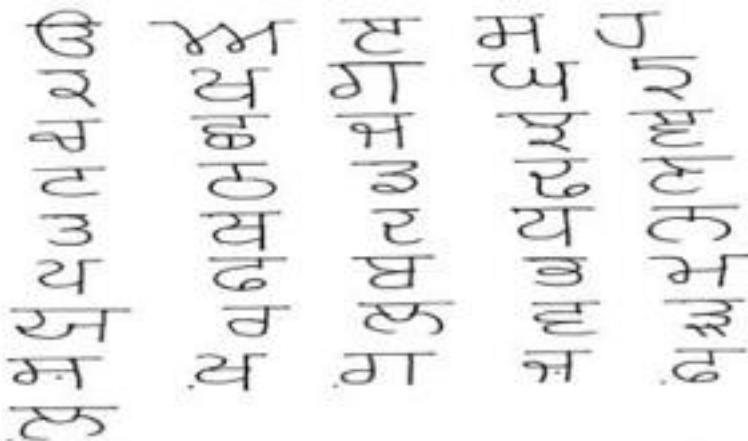 ੳ ਅ ੲ ਸ ਹ
ਕ ਖ ਗ ਘ ਙ
ਚ ਛ ਜ ਝ ਞ
ਟ ਠ ਡ ਢ ਣ
ਤ ਥ ਦ ਧ ਨ
ਪ ਫ ਬ ਭ ਮ
ਯ ਰ ਲ ਵ ੜ
ਸ਼ ਖ਼ ਗ਼ ਜ਼ ਫ਼
ਲ਼